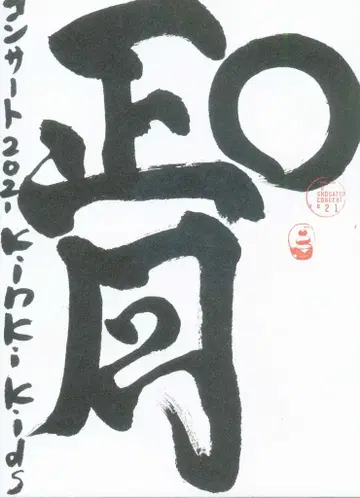 O正月
コンサート2021 KinKi Kids
CONCERT
2021